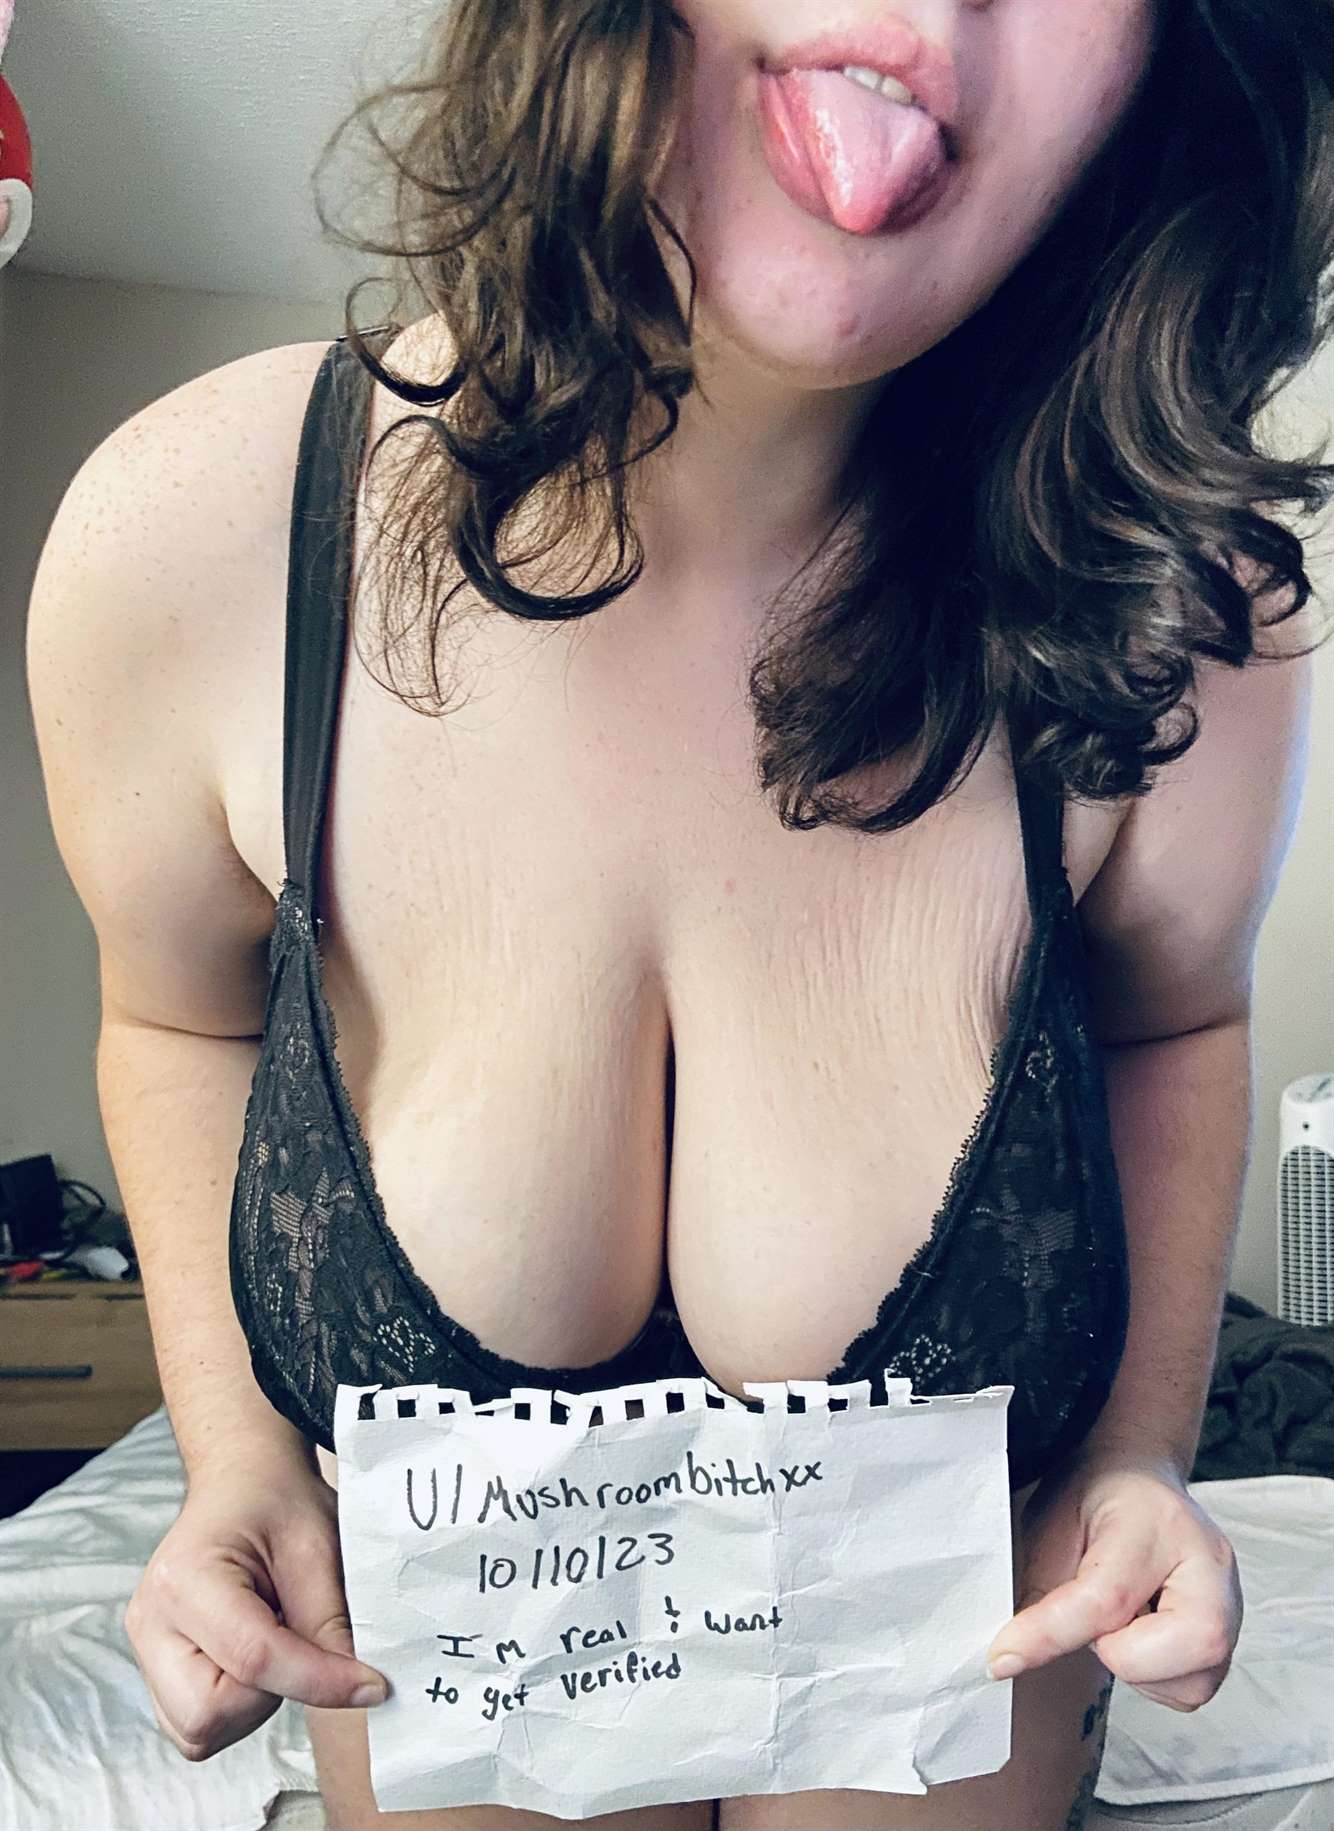 U/Mushroombitchxx
10/10/23
I'm real & want
to get verified